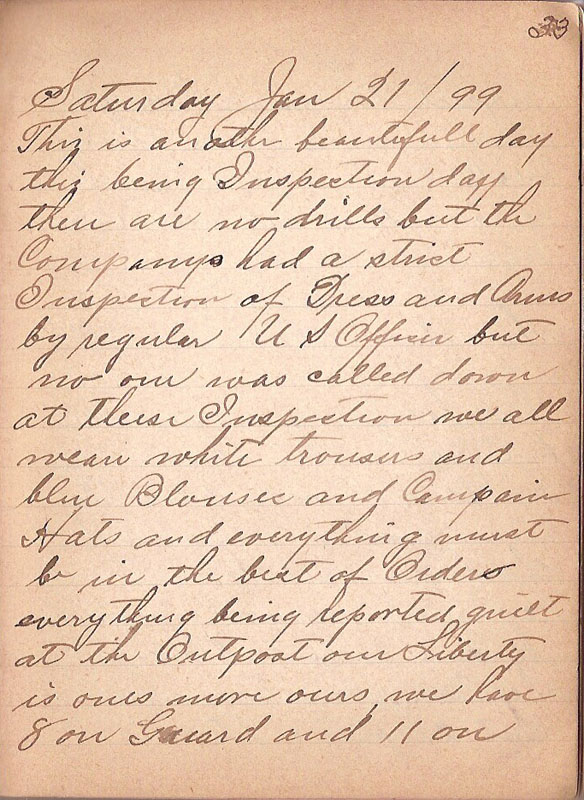 Saturday Jan 21/99
This is another beautifull day
this being Inspection day
there are no drills but the
Companys had a strict
Inspection of Dress and Arms
by regular U S Officer but
no one was called down
at these Inspection we all
wear white trousers and
blue Blouses and Campain
Hats and everything must
be in the best of Orders
everything being reported quiet
at the Outpost our Liberty
is ones more ours, we have
8 on Guard and 11 on